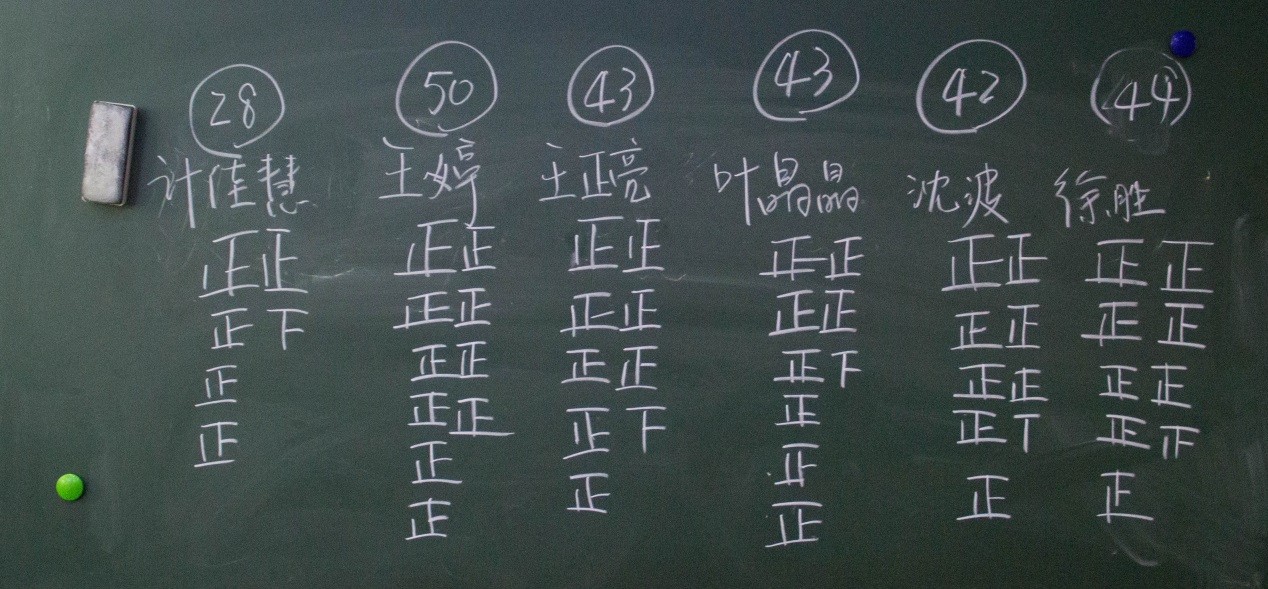 28 50 43 43 42 44
计佳慧 王婷 王正亮 叶晶晶 沈波 徐胜
正正 正正 正正 正正 正正 正正
正下 正正 正正 正正 正正 正正
正 正正 正正 正下 正正 正正
正 正正 正下 正 正丅 正𤴓
正 正 正 正 正
正 正